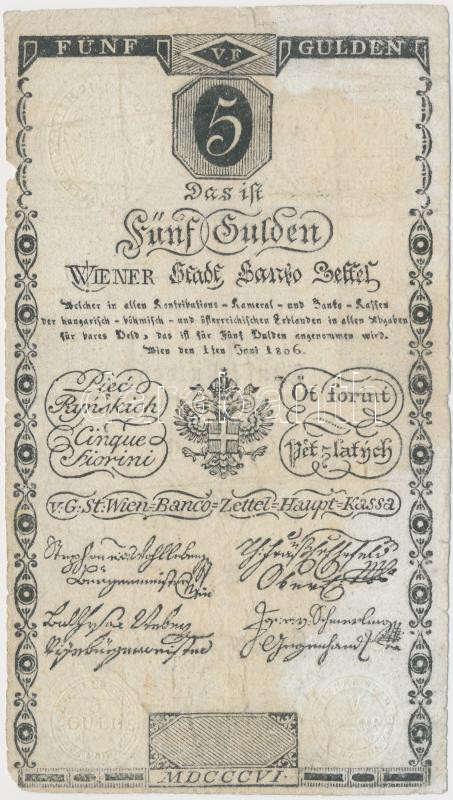 FÜNF V.F GULDEN
5
Das ist
Fünf Gulden
WIENER Stadt Banko Zettel
Welcher in allen Kontributions-Kameral- und Banko-Kassen
der hungarisch-böhmisch- und österreichischen Erblanden in allen Abgaben
für bares Geld, das ist für Fünf Gulden angenommen wird.
Wien den 1ten Juni 1806.
Pięć Ryńskich
Öt forint
Cinque Fiorini
Pět zlatých
v: G: St: Wien-Banco-Zettel-Haupt-Kassa
Stephan v. Wohlleben
Burgermeister
Ober
Vizebürgermeister
Schmerling
Gegenhand
5 GULD
MDCCCVI
darabanth